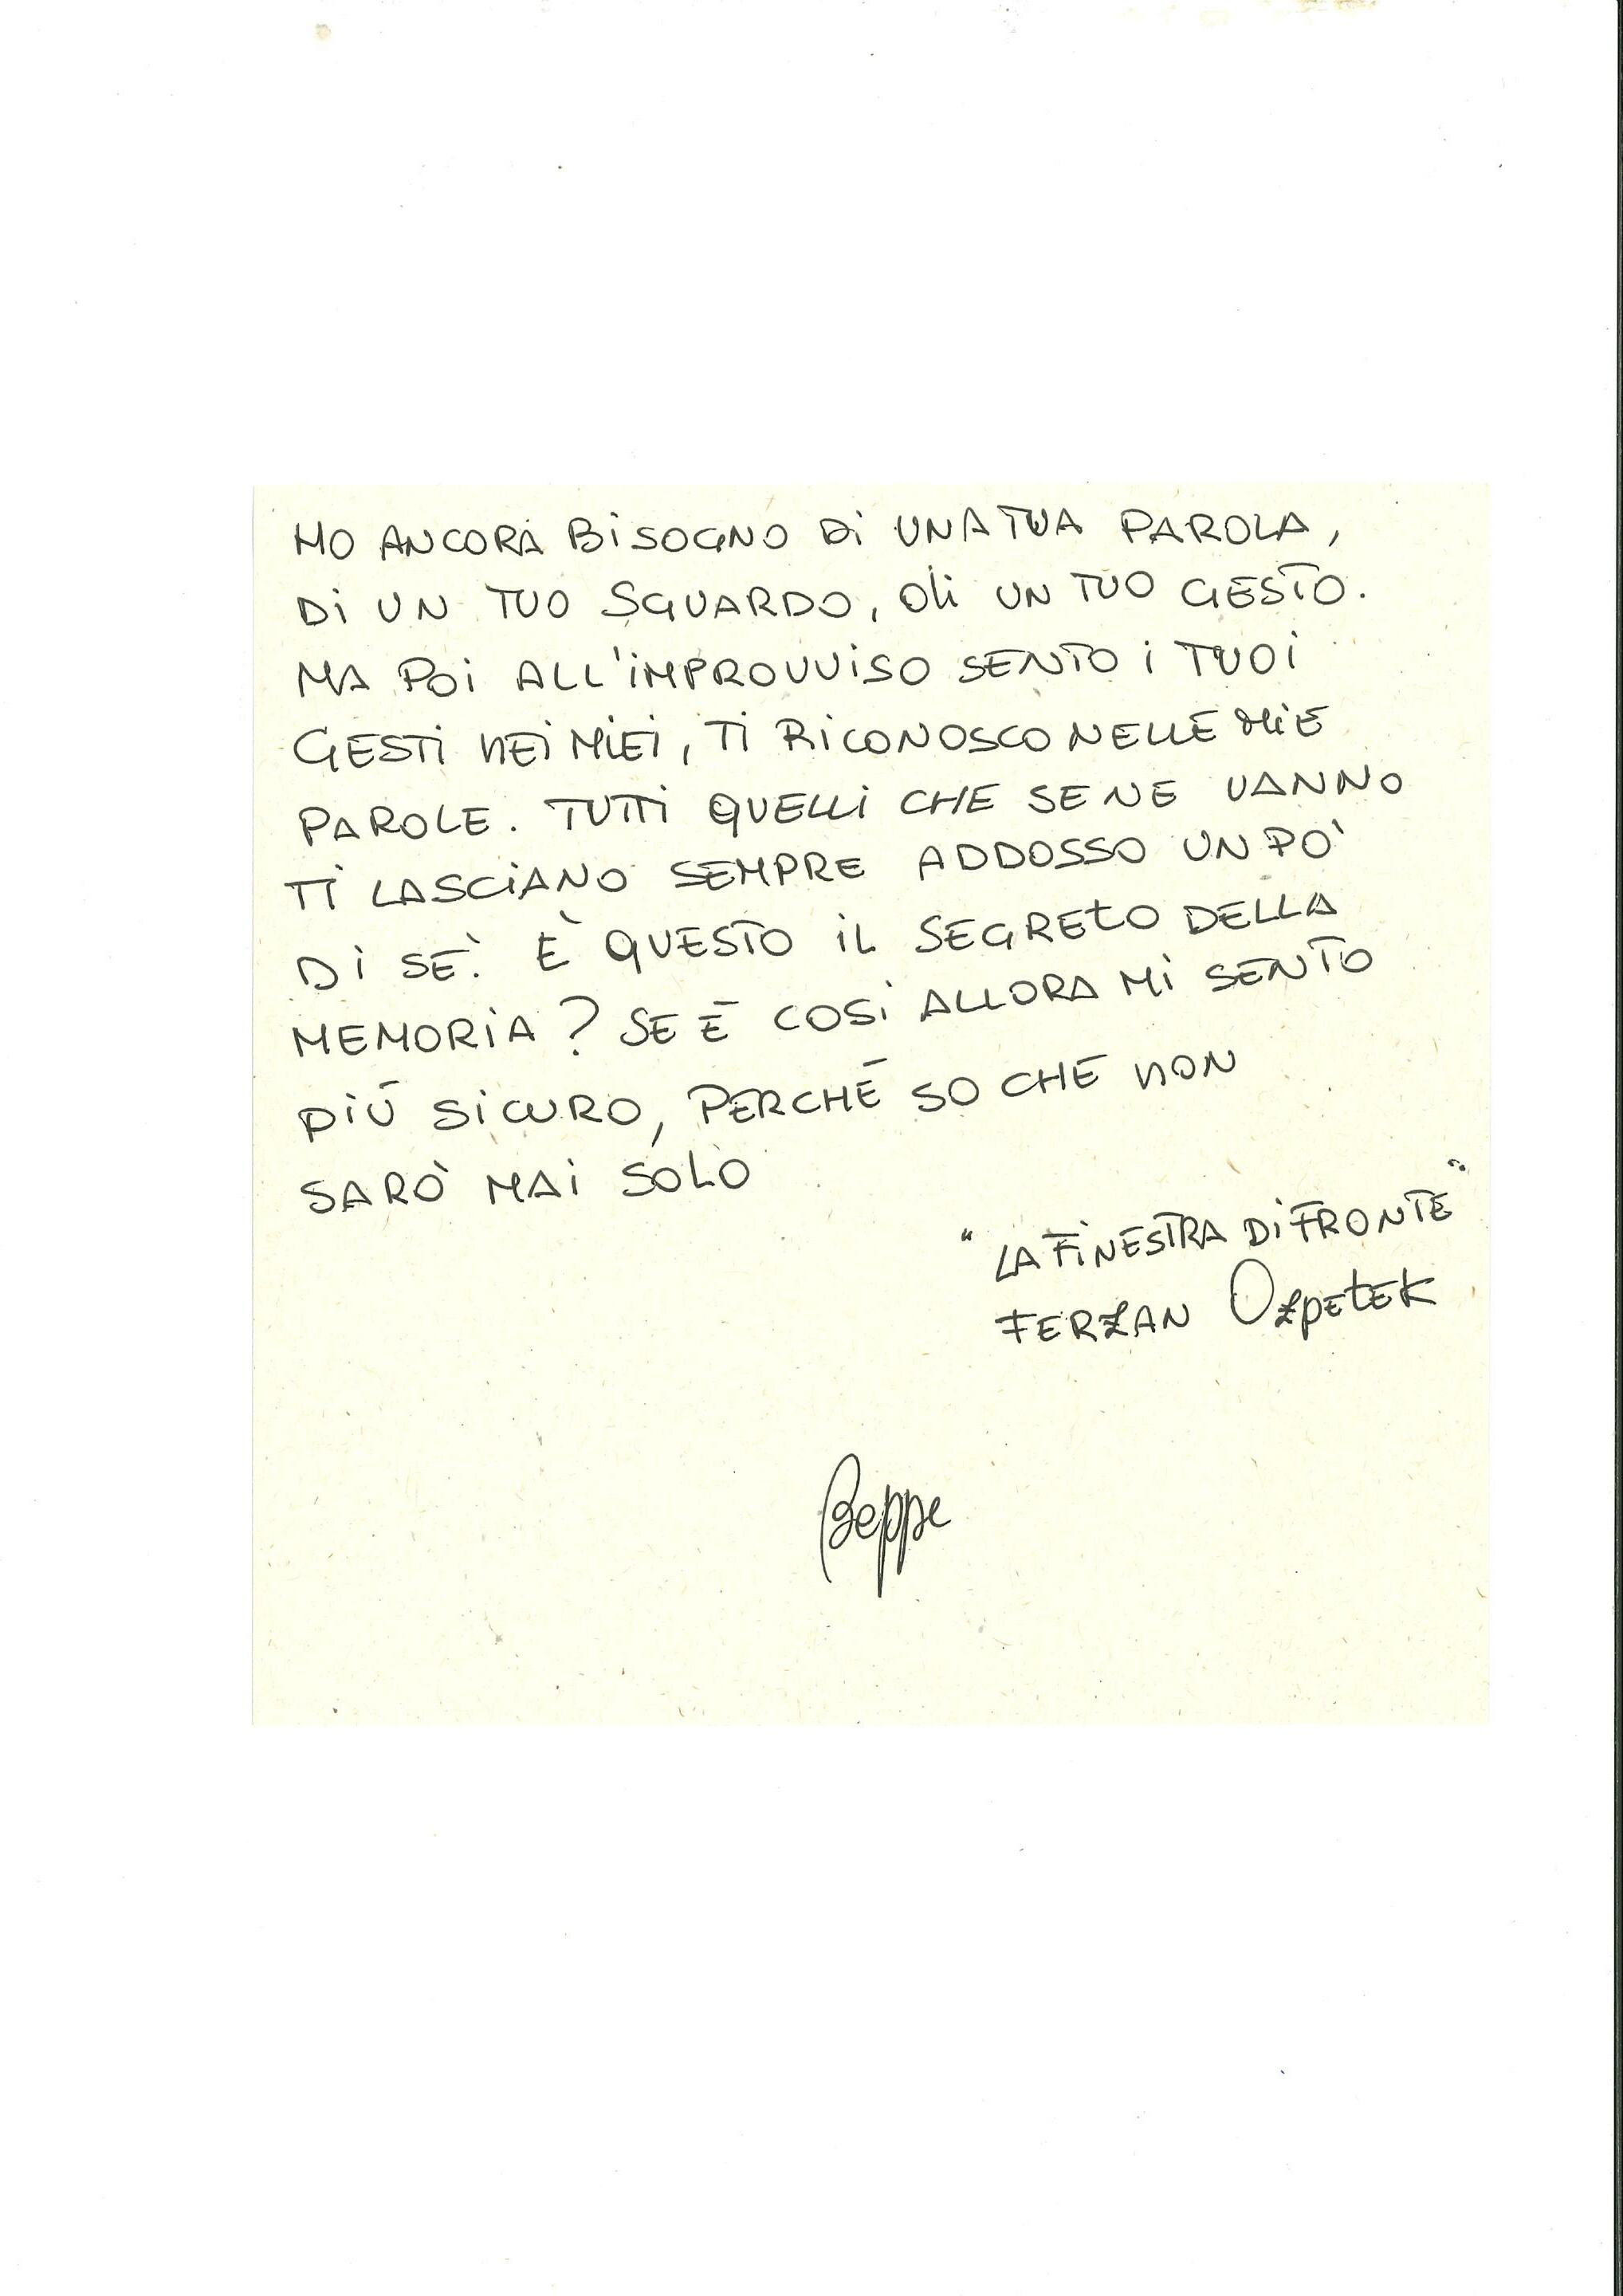 HO ANCORA BiSOGNO Di UNA TUA PAROLA,
Di UN TUO SGUARDO, di UN TUO GESTO.
MA POi ALL'iMPROVViSO SENTO i TUOi
GESTi NEi MiEi, Ti RiCONOSCO NELLE MiE
PAROLE. TUTTi QUELLi CHE SE NE VANNO
Ti LASCiANO SEMPRE ADDOSSO UN PO'
Di SÉ. È QUESTO iL SEGRETO DELLA
MEMORiA? SE È COSì ALLORA Mi SENTO
PiÙ SiCURO, PERCHÉ SO CHE NON
SARÒ MAi SOLO
"LA FiNESTRA Di FRONTE"
FERZAN OZPETEK
Beppe